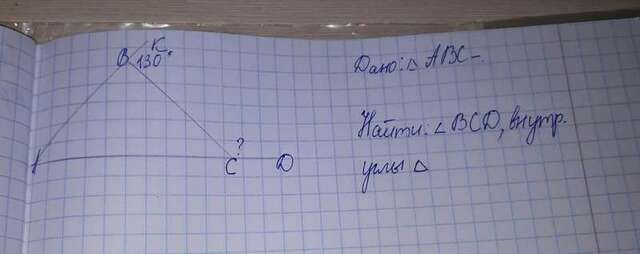 B K
130°
Дано: △ ABC -.
Найти: ∠ BCD, внутр.
углы △
?
A C D